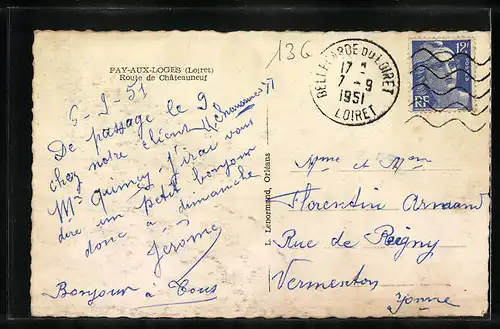 FAY-AUX-LOGES (Loiret)
Route de Châteauneuf
136
6-9-51
De passage le 9
chez notre client (Chanomas ?)
Mr Quincy J'irai vous
dire un petit bonjour
donc à dimanche
Jérôme
Bonjour à Tous
L. Lenormand, Orléans
BELLEGARDE DU LOIRET
17 -
7 - 9
1951
LOIRET
12F
RF
Mme et Mm
Florentin Armand
Rue de Reigny
Vermenton
Yonne